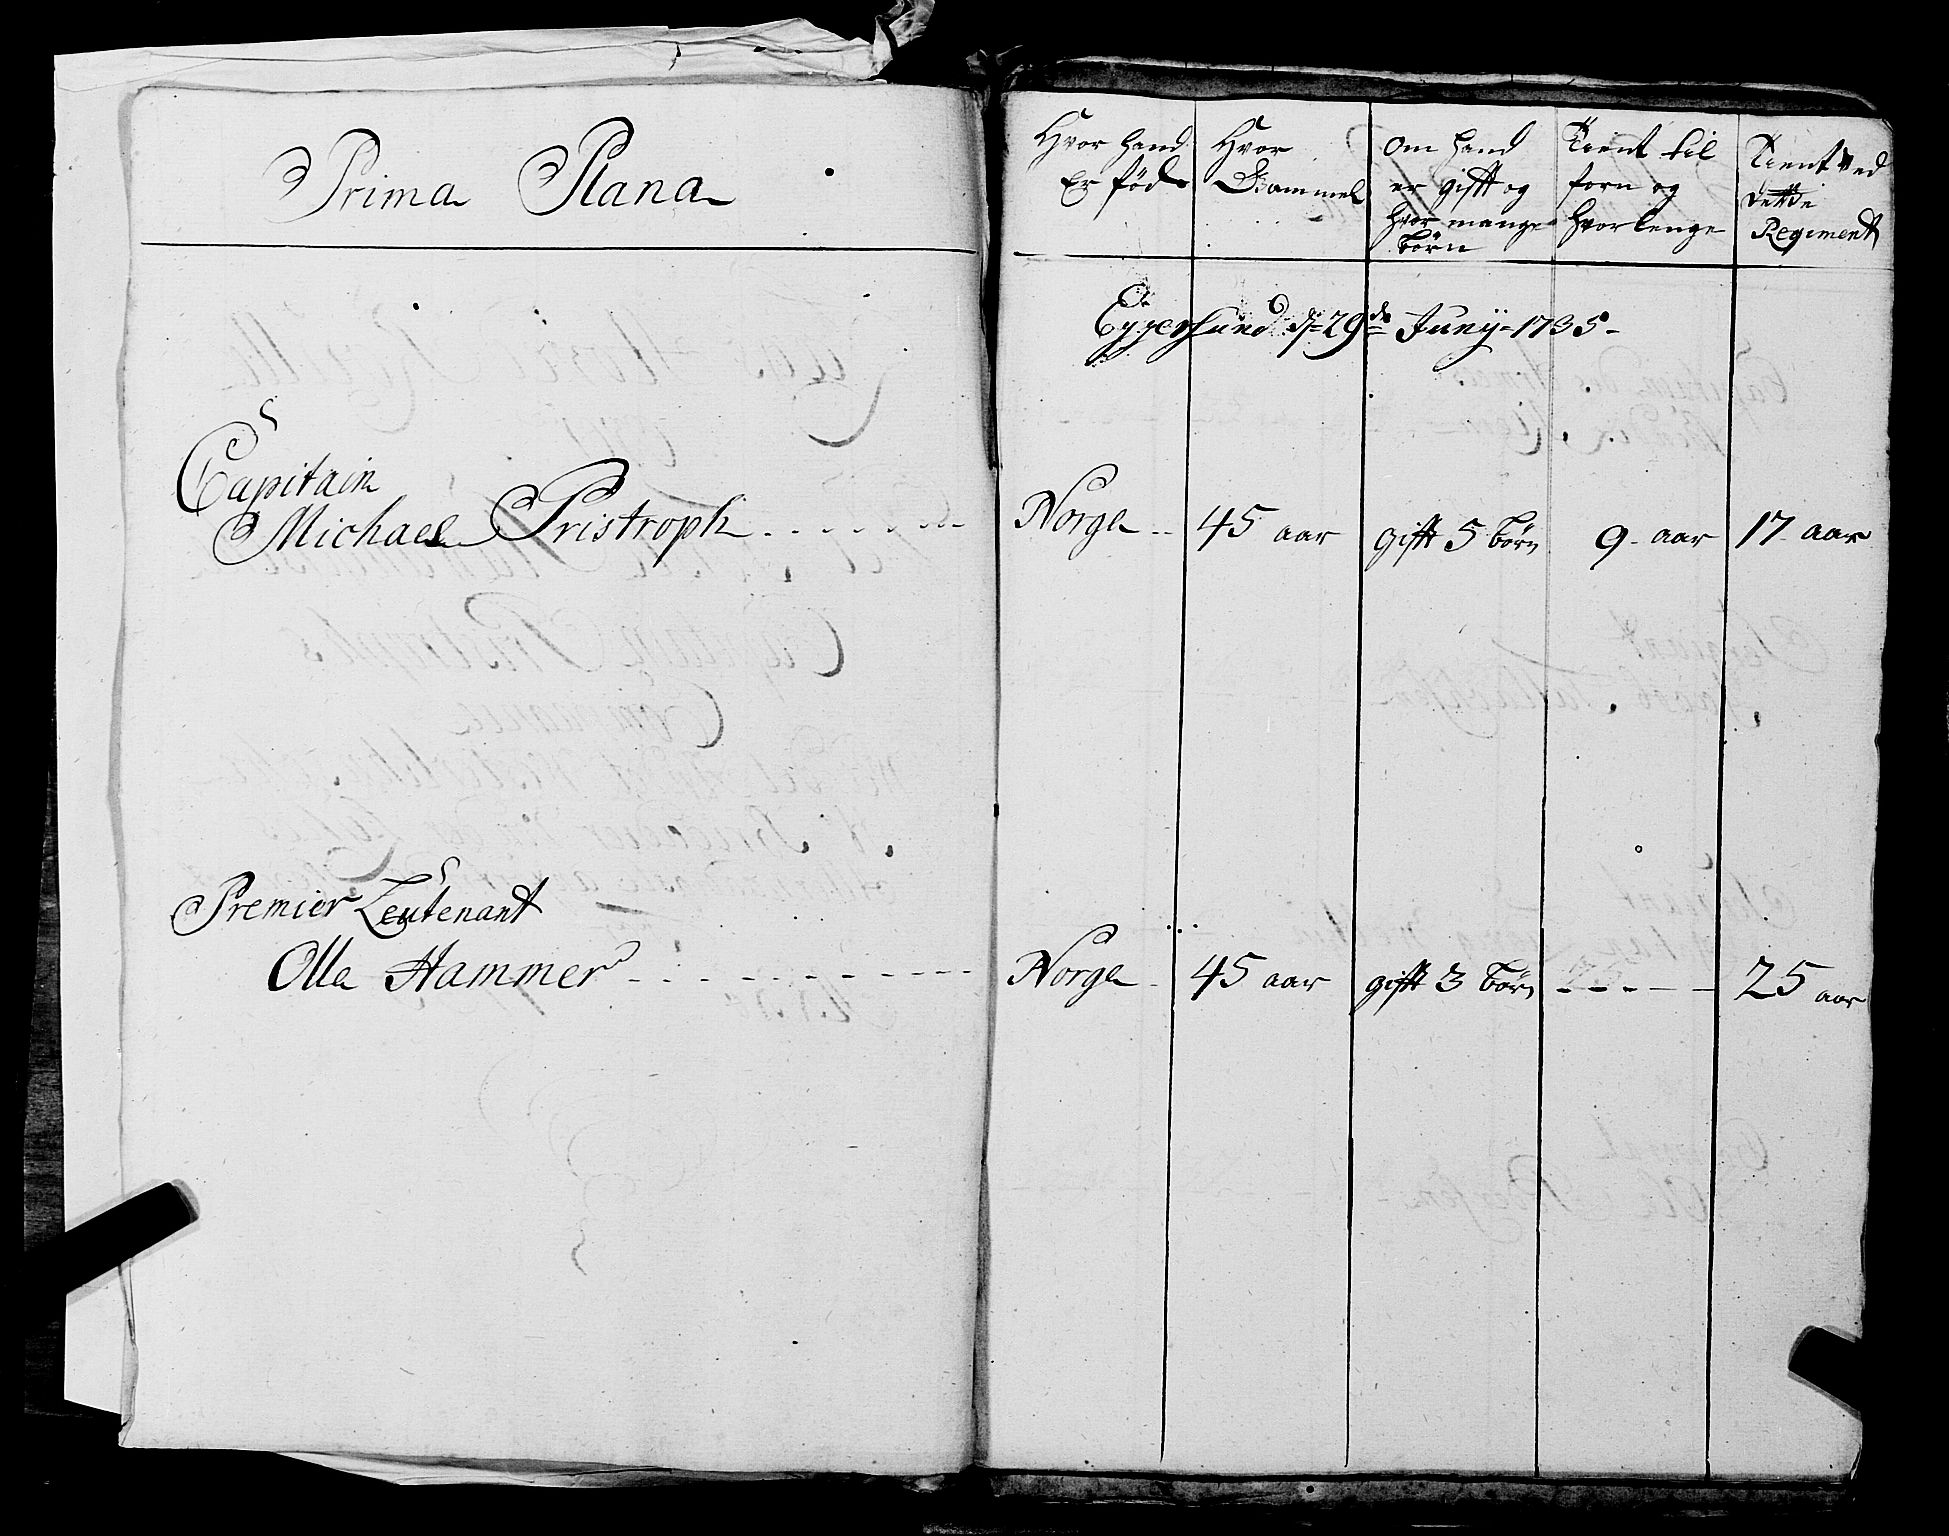 Prima Plana
Hvor hand
Er föd
Hvor
Gammel
Om hand
er gift og
hvor mange
börn
Tient til
forn og
hvorlenge
Tient ved
dette
Regiment
Eggersund d 29de Juny 1735
Capitain
Michael Pristroph
Norge
45 aar
gift 5 börn
9 aar
17 aar
Premier Leutenant
Olle Hammer
Norge
45 aar
gift 3 börn
25 aar